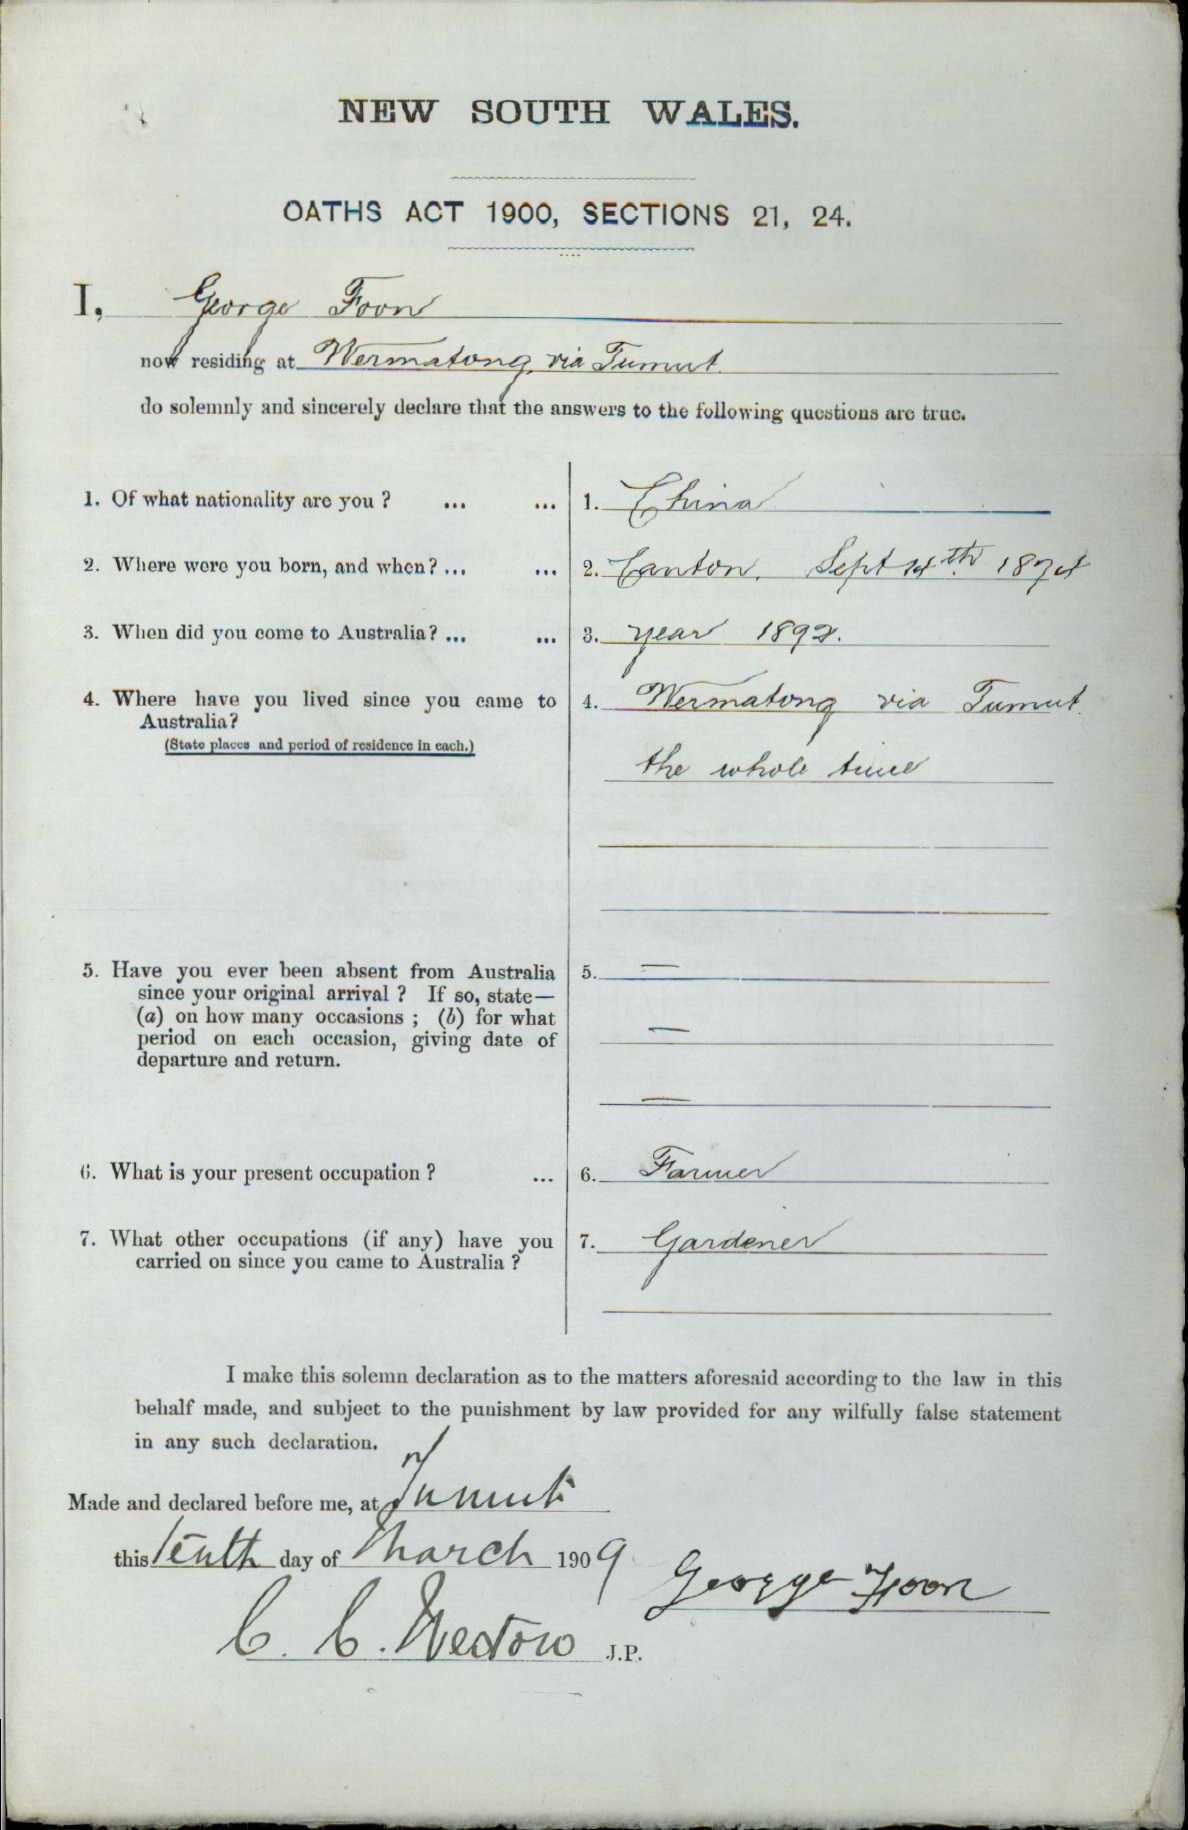 NEW SOUTH WALES.
OATHS ACT 1900, SECTIONS 21, 24.
I, George Foon
now residing at Wermatong, via Tumut.
do solemnly and sincerely declare that the answers to the following questions are true.
1. Of what nationality are you ? ... ... 1. China
2. Where were you born, and when? ... ... 2. Canton. Sept 14th 1874
3. When did you come to Australia? ... ... 3. year 1892.
4. Where have you lived since you came to 4. Wermatong via Tumut.
Australia?
(State places and period of residence in each.)
the whole time
5. Have you ever been absent from Australia 5. —
since your original arrival ? If so, state—
(a) on how many occasions ; (b) for what —
period on each occasion, giving date of
departure and return.
—
6. What is your present occupation ? ... 6. Farmer
7. What other occupations (if any) have you 7. Gardener
carried on since you came to Australia ?
I make this solemn declaration as to the matters aforesaid according to the law in this
behalf made, and subject to the punishment by law provided for any wilfully false statement
in any such declaration.
Made and declared before me, at Tumut
this tenth day of March 1909
George Foon
C. C. J.P.